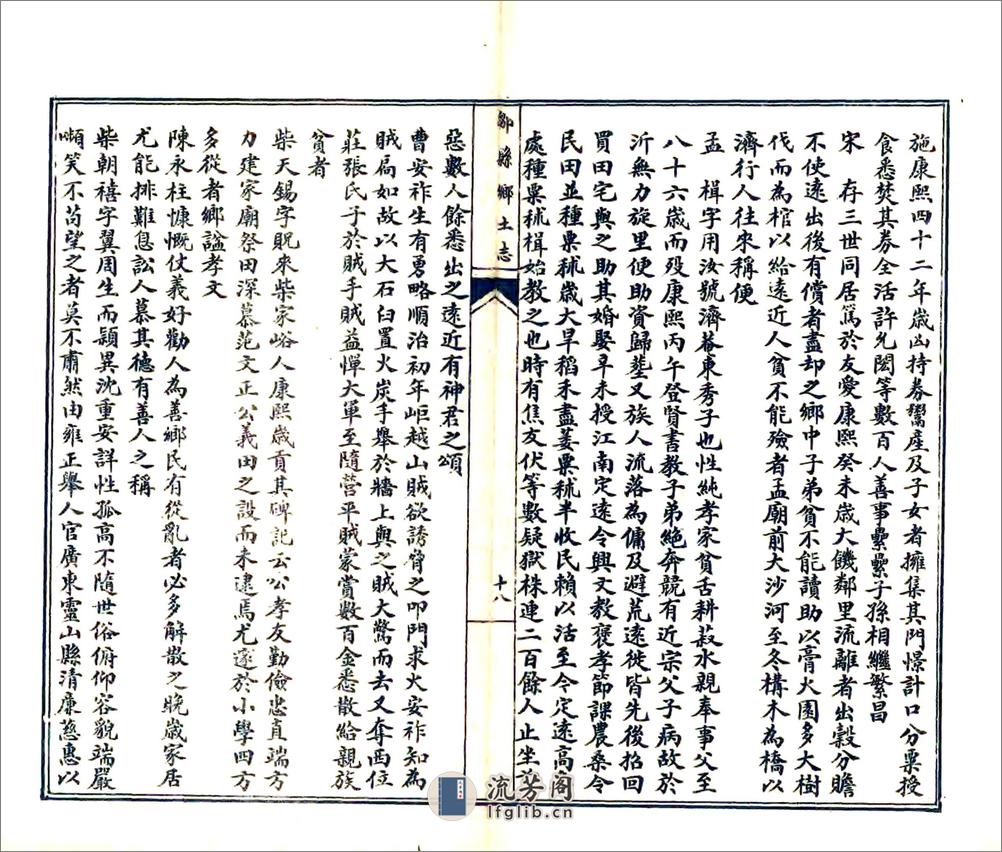 施康熙四十二年歲凶持券鬻產及子女者擁集其門憬計口分票授
食悉焚其券全活許允閣等數百人善事纍纍子孫相繼繁昌
宋　存三世同居篤於友愛康熙癸未歲大饑鄰里流離者出穀分贍
不使遠出後有償者盡却之鄉中子弟貧不能讀助以膏火園多大樹
伐而為棺以給遠近人貧不能殮者孟廟前大沙河至冬構木為橋以
濟行人往來稱便
孟　楫字用汝號濟菴東秀子也性純孝家貧舌耕菽水親奉事父至
八十六歲而歿康熙丙午登賢書教子弟絕奔競有近宗父子病故於
沂無力旋里便助資歸塟又族人流落為傭及避荒遠徙皆先後招回
買田宅與之助其婚娶早未授江南定遠令興文教褒孝節課農桑令
民田並種粟秫歲大旱稻禾盡萎粟秫半收民賴以活至今定遠高阜
處種粟秫楫始教之也時有焦友伏等數疑獄株連二百餘人止坐首
鄒縣鄉土志
十八
惡數人餘悉出之遠近有神君之頌
曹安祚生有勇略順治初年岠越山賊欲誘脅之叩門求火安祚知為
賊局如故以大石臼置火炭手舉於牆上與之賊大驚而去又奪西位
莊張氏子於賊手賊益憚大軍至隨營平賊蒙賞數百金悉散給親族
貧者
柴天錫字貺來柴家峪人康熙歲貢其碑記云公孝友勤儉忠直端方
力建家廟祭田深慕范文正公義田之設而未逮焉尤邃於小學四方
多從者鄉諡孝文
陳永柱慷慨仗義好勸人為善鄉民有從亂者必多解散之晚歲家居
尤能排難息訟人慕其德有善人之稱
柴朝禧字翼周生而穎異沈重安詳性孤高不隨世俗俯仰容貌端嚴
嚬笑不苟望之者莫不肅然由雍正舉人官廣東靈山縣清廉慈惠以
流芳阁
lfglib.cn